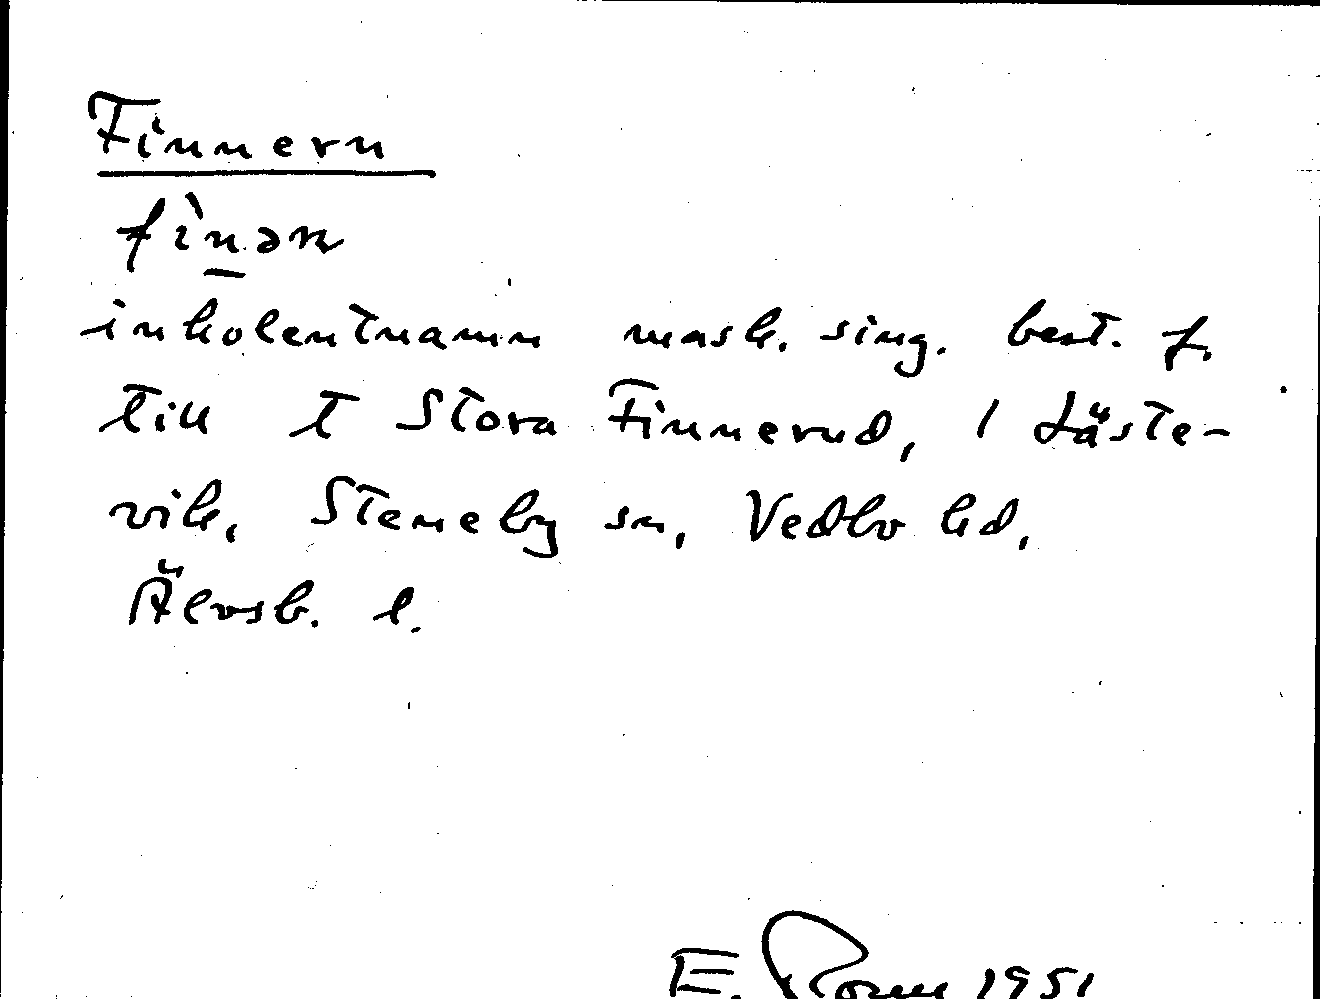 Finnern
fi̊nər
inkolentnamn mask. sing. best. f.
till t Stora Finnerud, 1 Läste-
vik, Steneby sn, Vedbo hd,
Älvsb. l.
E. 1951